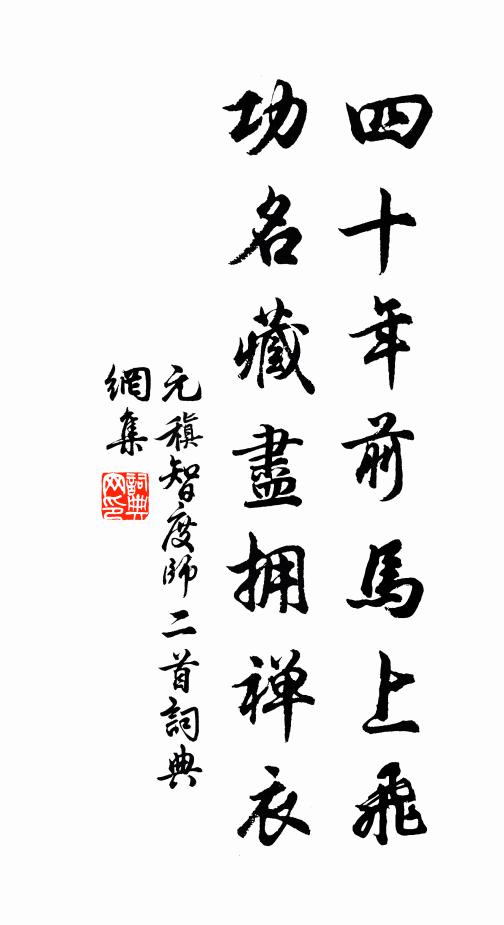 四十年前馬上飛
功名藏盡拥禅衣
元稹智度師二首詞典
網集
詞典網印